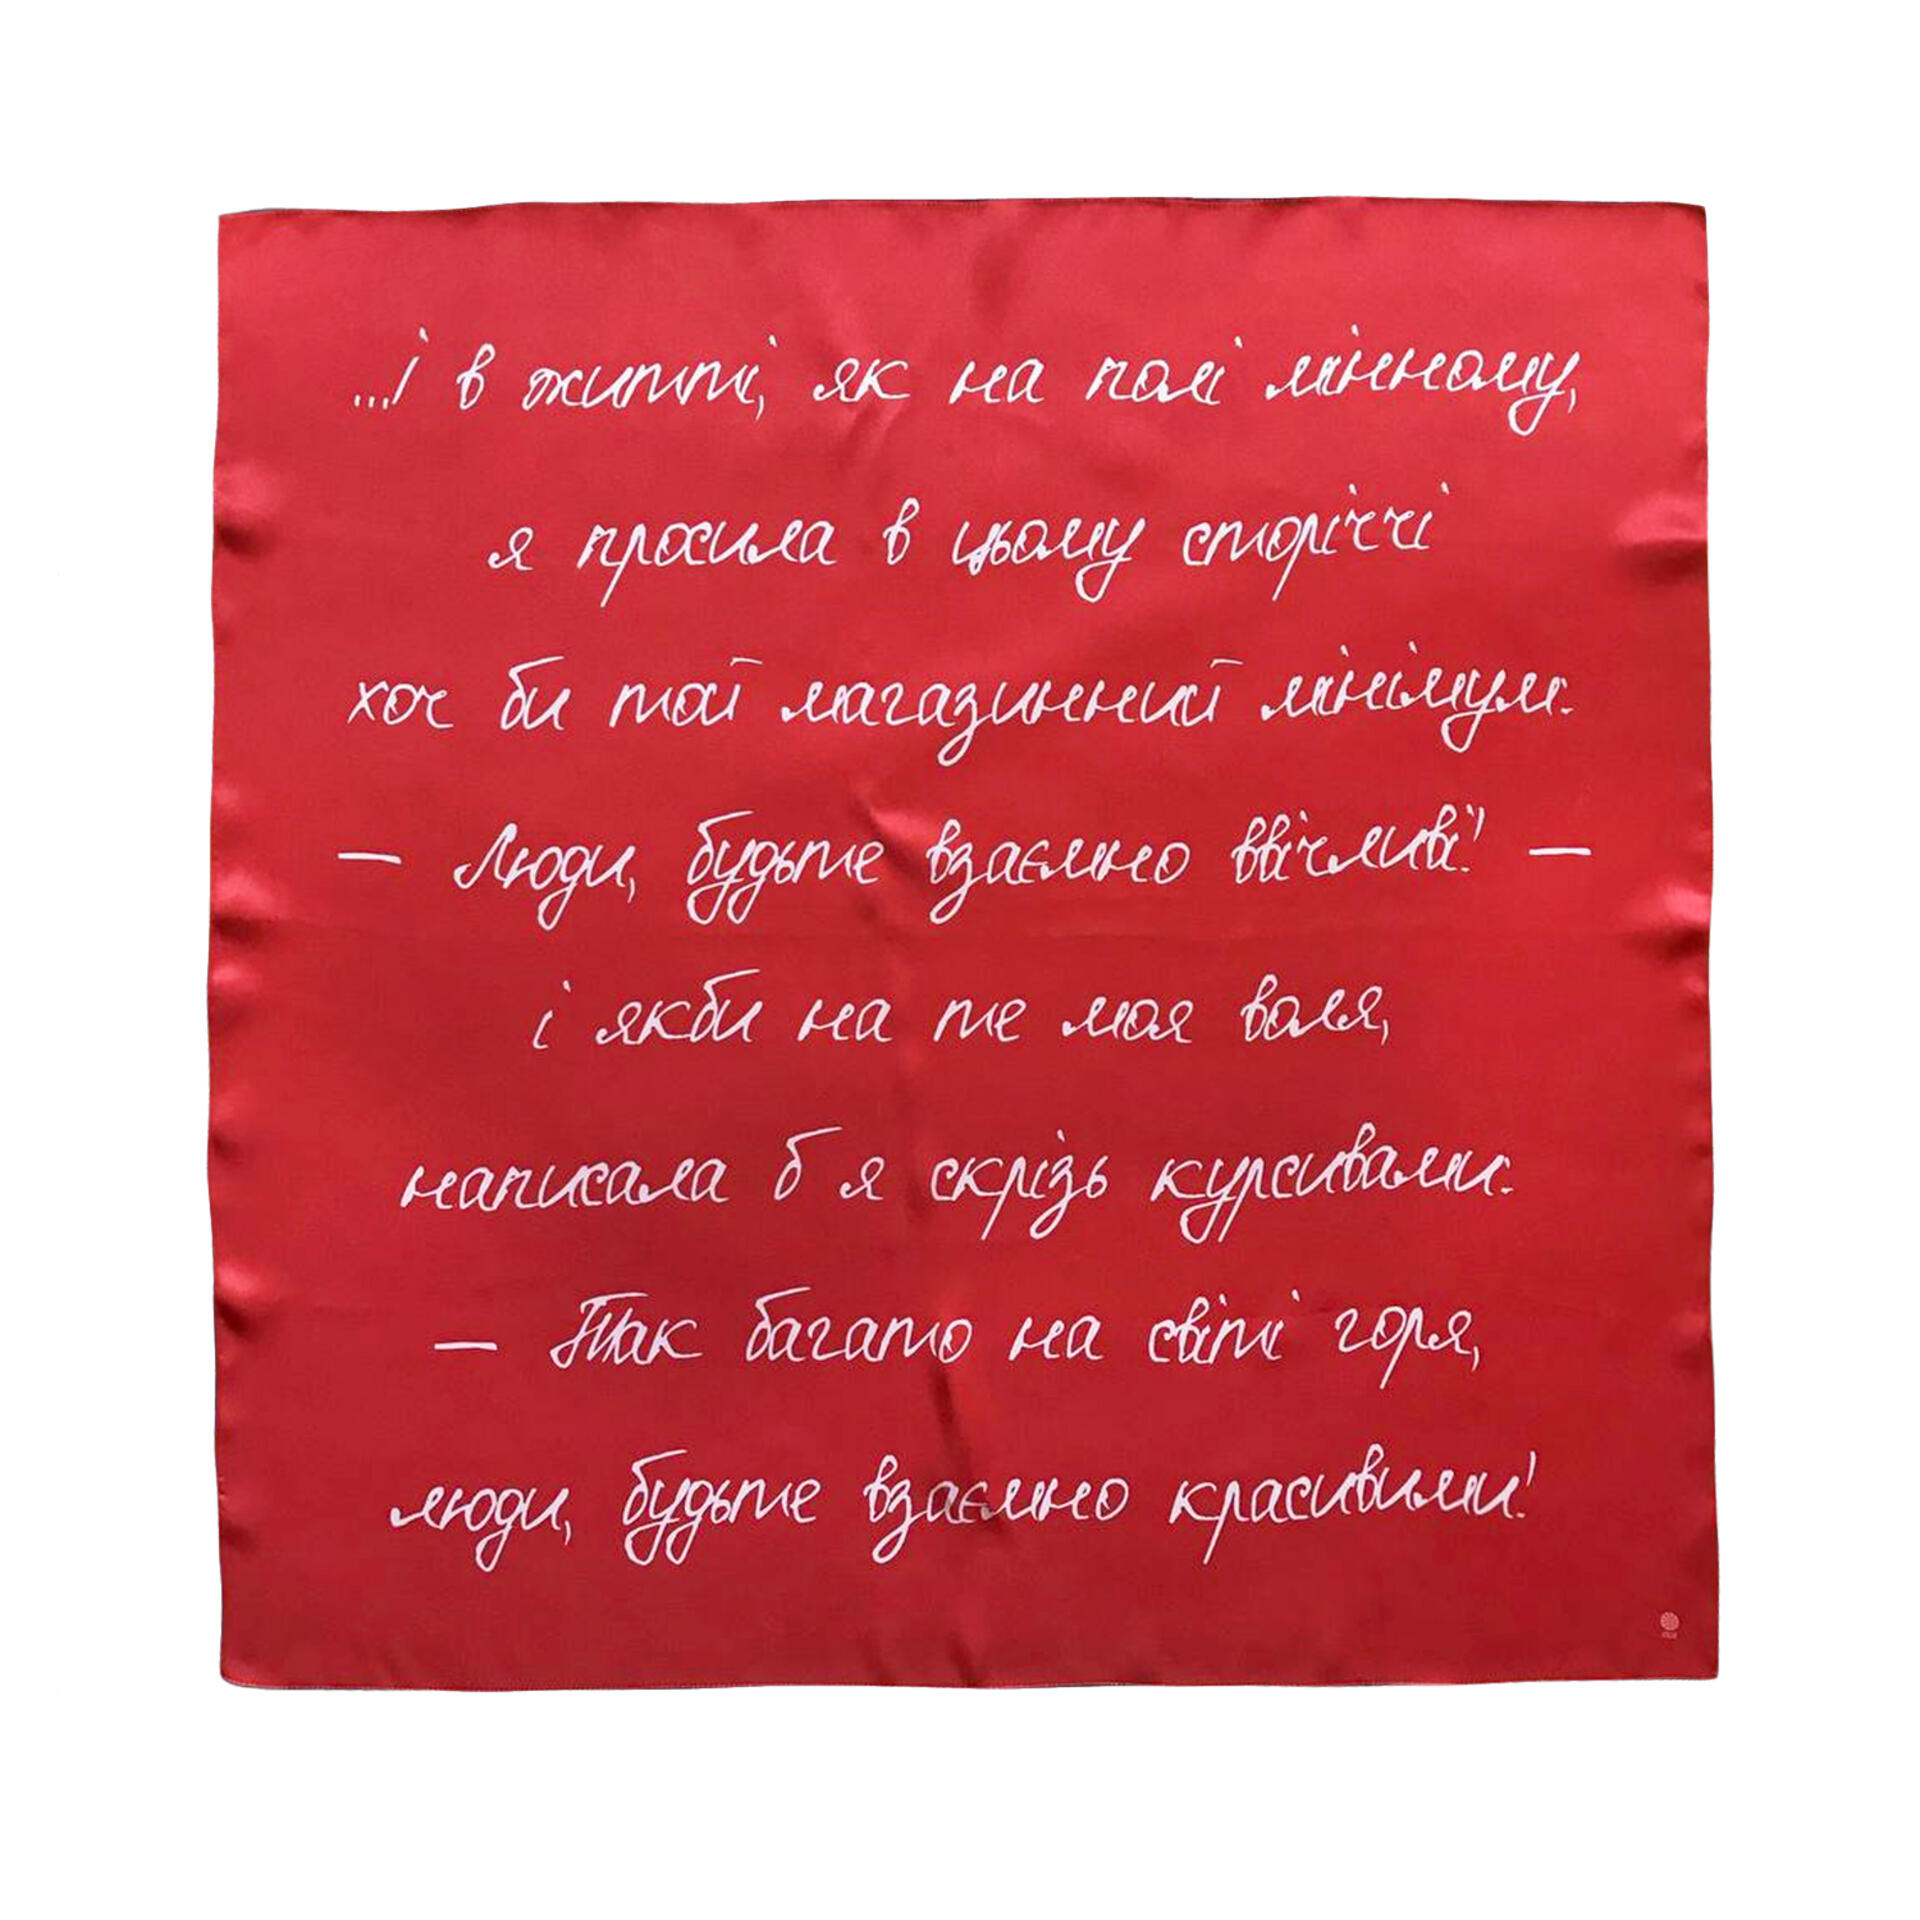 ...і в житті, як на полі мінному,
я просила в цьому сторіччі
хоч би той магазинний мінімум:
– Люди, будьте взаємно ввічливі! –
і якби на те моя воля,
написала б я скрізь курсивами:
– Так багато на світі горя,
люди, будьте взаємно красивими!